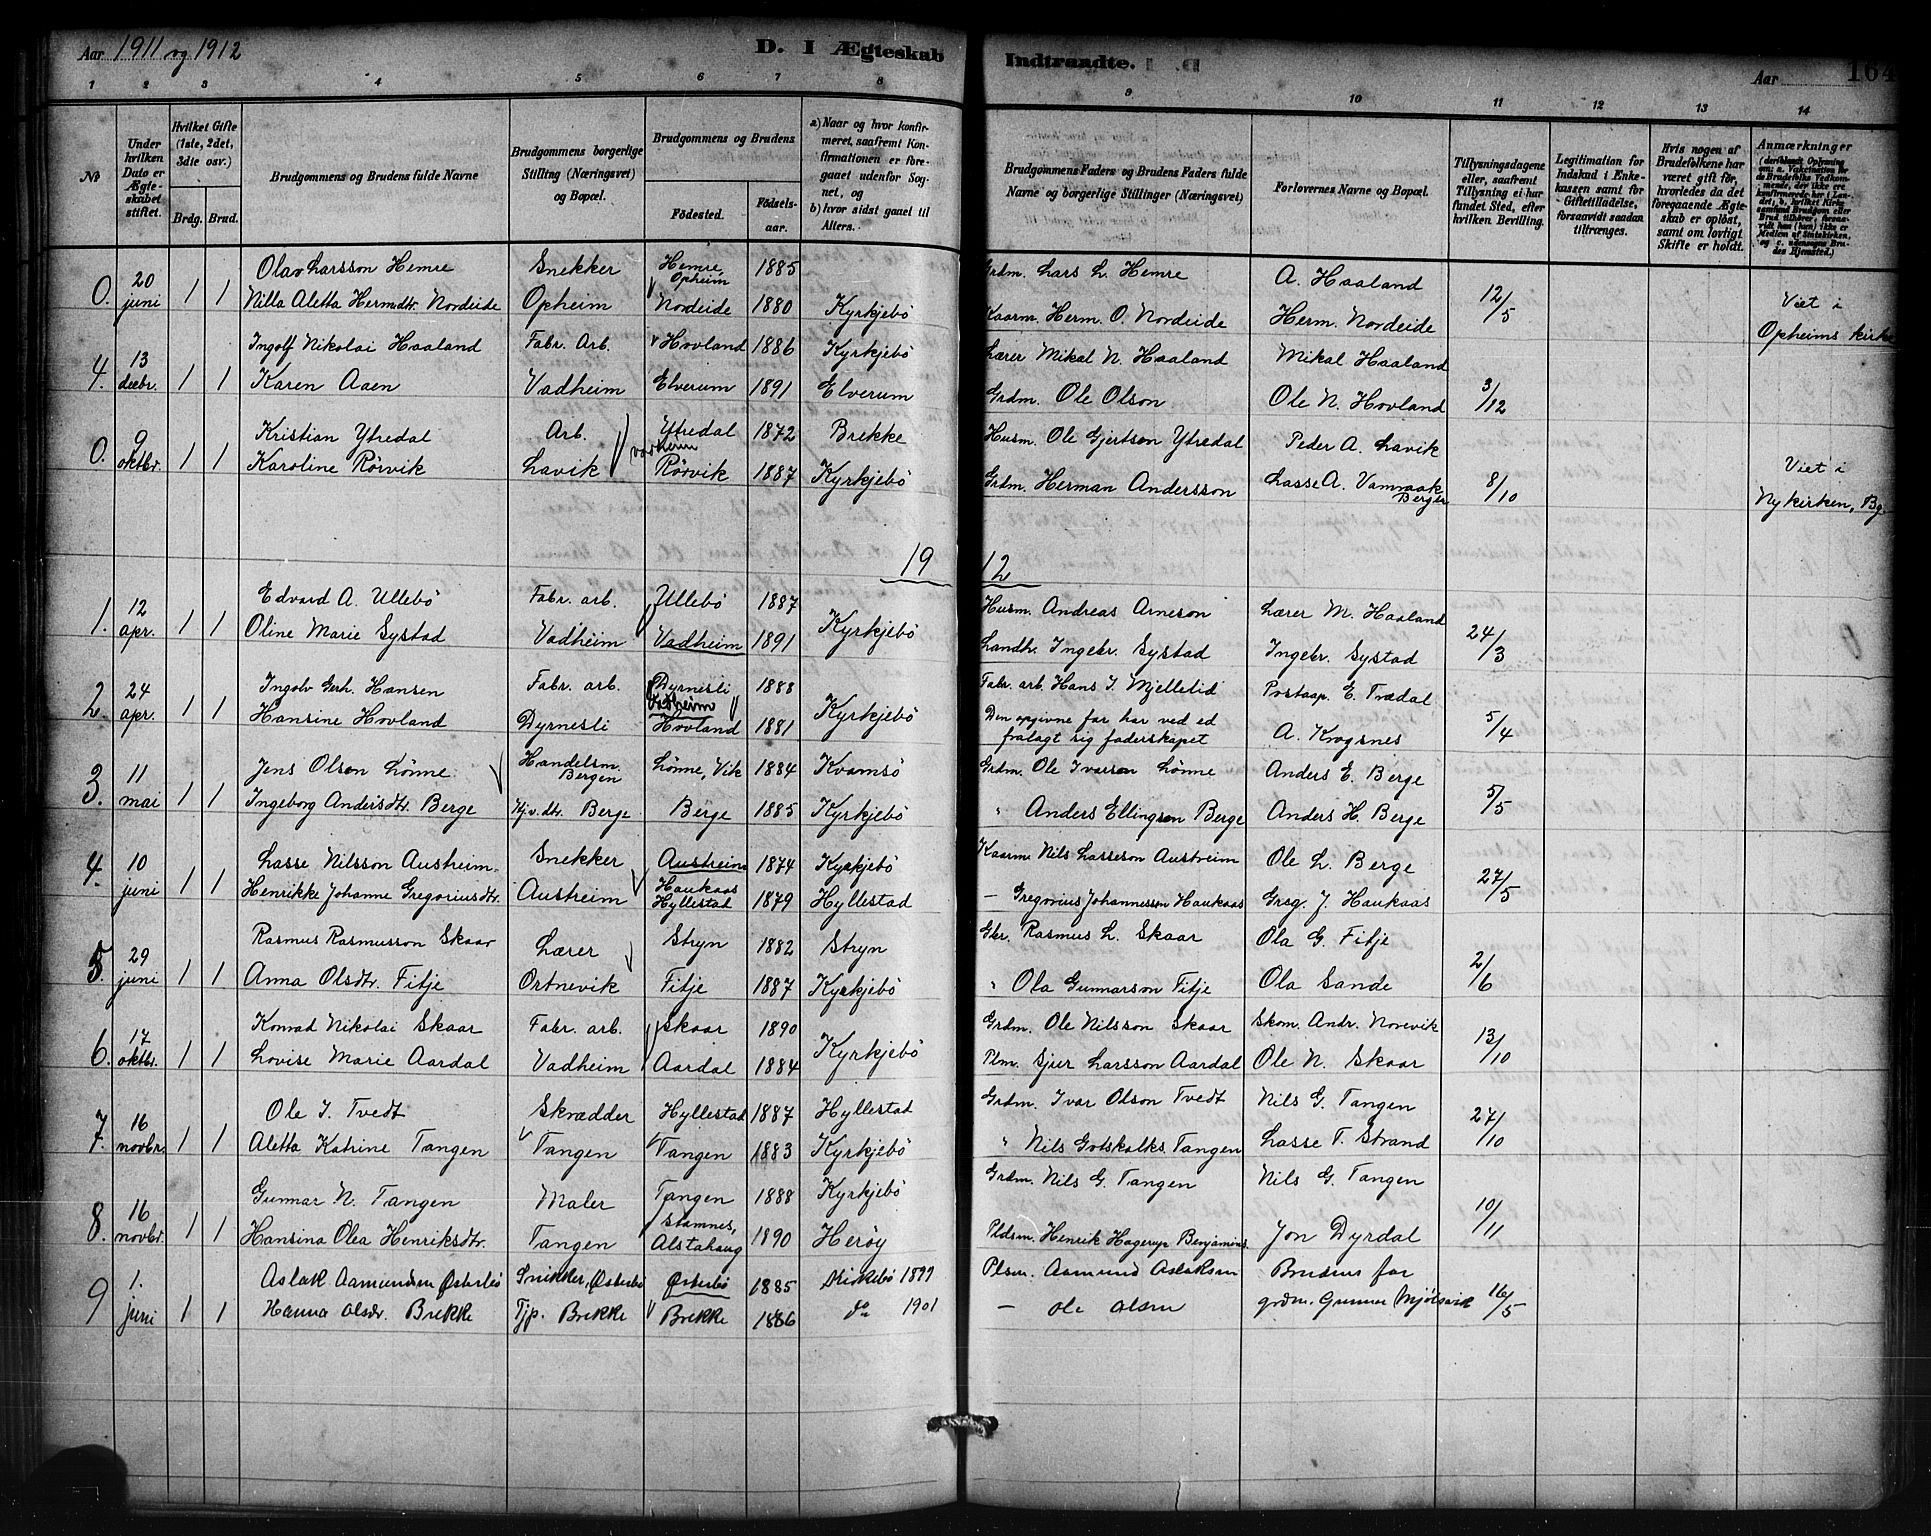 Aar 1911 og 1912
D. I Ægteskab Indtraadte.
Aar 164
1 2 3 4 5 6 7 8 9 10 11 12 13 14
No
Under hvilken Dato er Ægteskabet stiftet.
Hvilket Gifte (1ste, 2det, 3die osv.)
Brdg. Brud.
Brudgommens og Brudens fulde Navne
Brudgommens borgerlige Stilling (Næringsvei) og Bopæl.
Brudgommens og Brudens
Fødested. Fødselsaar.
a) Naar og hvor konfirmeret, saafremt Konfirmationen er foregaaet udenfor Sognet, og
b) hvor sidst gaaet til Alters.
Brudgommens Faders og Brudens Faders fulde Navne og borgerlige Stillinger (Næringsvei)
Forlovernes Navne og Bopæl.
Tillysningsdagene eller, saafremt Tillysning ei har fundet Sted, efter hvilken Bevilling.
Legitimation for Indskud i Enkekassen samt for Giftetilladelse, forsaavidt saadan tiltrænges.
Hvis nogen af Brudefolkene har været gift før, hvorledes da det foregaaende Ægteskab er opløst, samt om lovligt Skifte er holdt.
Anmærkninger
0. 20 juni 1 1 Olav Larsson Hemre Snekker Hemre, Opheim 1885 Grdm. Lars L. Hemre A. Haaland 12/5 Viet i
Nilla Aletta Hermdtr. Nordeide Opheim Nordeide 1880 Kyrkjebö Kaarm. Herm. O. Nordeide Herm. Nordeide Opheims kirke
4. 13 decbr. 1 1 Ingolf Nikolai Haaland Fabr. Arb. Hovland 1886 Kyrkjebö Lærer Mikal N. Haaland Mikal Haaland
Karen Aaen Vadheim Elverum 1891 Elverum Grdm. Ole Olson Ole N. Hovland 3/12
0. 9 oktbr. 1 1 Kristian Ytredal Arb. Ytredal 1872 Brekke Husm. Ole Gjertson Ytredal Peder A. Lavik
Karoline Rörvik Lavik Vadheim Rörvik 1887 Kyrkjebö Grdm. Herman Andersson Lasse A. Vamraak Bergen 8/10 Viet i Nykirken, Bg.
1912
1. 12 apr. 1 1 Edvard A. Ullebö Fabr. arb. Ullebö 1887 Husm. Andreas Arneson Lærer M. Haaland
Oline Marie Systad Vadheim Vadheim 1891 Kyrkjebö Landh. Ingebr. Systad Ingebr. Systad 24/3
2. 24 apr. 1 1 Ingolv Gerh. Hansen Fabr. arb. Dyrnesli Vadheim 1888 Fabr. arb. Hans I. Mjellelid Postaap. E. Trædal
Hansine Hovland Dyrnesli Hovland 1881 Kyrkjebö Den opgivne far har ved ed fralagt sig faderskapet A. Krogsnes 5/4
3. 11 mai 1 1 Jens Olson Lönne Handelsm. Bergen Lönne, Vik 1884 Kvamsö Grdm. Ole Ivarson Lönne Anders E. Berge
Ingeborg Andersdtr. Berge Kjv.dtr. Berge Berge 1885 Kyrkjebö " Anders Ellingson Berge Anders H. Berge 5/5
4. 10 juni 1 1 Lasse Nilsson Austreim Snekker Austreim 1874 Kyrkjebö Kaarm. Nils Lasseson Austreim Ole L. Berge
Henrikke Johanne Gregoriusdtr. Austreim Haukaas Hyllestad 1879 Hyllestad - Gregorius Johannesson Haukaas Greg. J. Haukaas 27/5
5. 29 juni 1 1 Rasmus Rasmusson Skaar Lærer Stryn 1882 Stryn Gbr. Rasmus L. Skaar Ola G. Fitje
Anna Olsdtr. Fitje Ortnevik Fitje 1887 Kyrkjebö " Ola Gunnarson Fitje Ola Sande 2/6
6. 17 oktbr. 1 1 Konrad Nikolai Skaar Fabr. arb. Skaar 1890 Grdm. Ole Nilsson Skaar Skom. Andr. Norevik
Lovise Marie Aardal Vadheim Aardal 1884 Kyrkjebö Plm. Sjur Larsson Aardal Ole N. Skaar 13/10
7. 16 novbr. 1 1 Ole I. Tvedt Skrædder Hyllestad 1887 Hyllestad Grdm. Ivar Olson Tvedt Nils G. Tangen
Aletta Katrine Tangen Tangen Tangen 1883 Kyrkjebö " Nils Gotskalks. Tangen Lasse T. Strand 27/10
8. 16 novbr. 1 1 Gunnar N. Tangen Maler Tangen 1888 Kyrkjebö Grdm. Nils G. Tangen Nils G. Tangen
Hansina Olea Henriksdtr. Tangen Stamnes, Alstahaug 1890 Heröy Pldsm. Henrik Hagerup Benjamins. Jon Dyrdal 10/11
9 1. juni 1 1 Aslak Aamundsen Østerbø Snikker, Østerbø Østerbø 1885 Kirkebø 1899 Plsm. Aamund Aslaksen Brudens far
Hanna Olsdr. Brekke Tjp. Brekke Brekke 1886 do 1901 - Ole Olsen grdm. Gunnar Mjølsvik 16/5